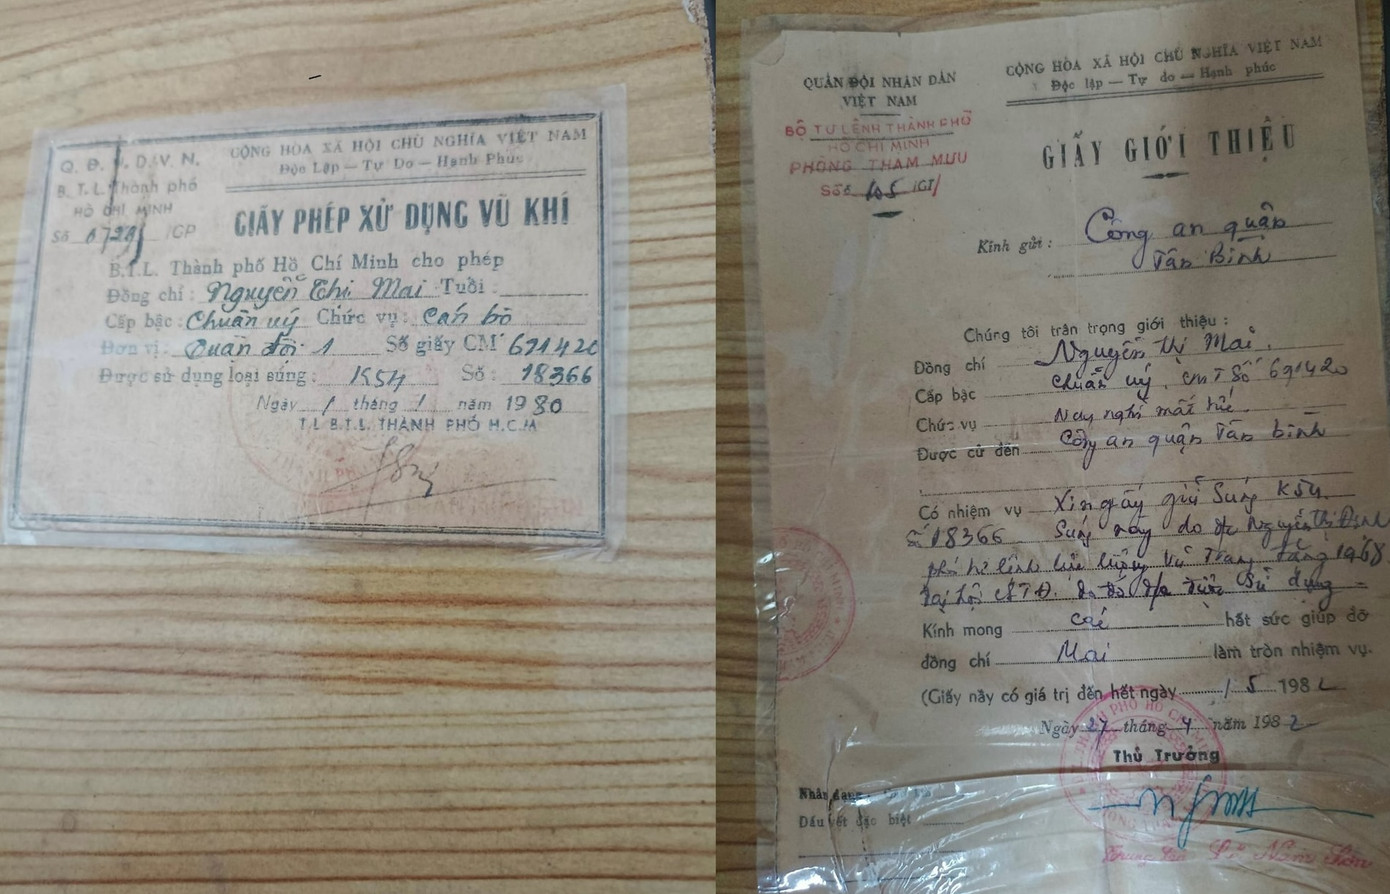 Q. Đ. N. D. V. N.
B. T. L. Thành phố
HỒ CHÍ MINH
Số 0728 /GP
CỘNG HÒA XÃ HỘI CHỦ NGHĨA VIỆT NAM
Độc Lập — Tự Do — Hạnh Phúc
GIẤY PHÉP XỬ DỤNG VŨ KHÍ
B.T.L. Thành phố Hồ Chí Minh cho phép
Đồng chí : Nguyễn Thị Mai Tuổi :
Cấp bậc : Chuẩn uý Chức vụ : Cán bộ
Đơn vị : Quân đội 1 Số giấy CM 691420
Được sử dụng loại súng : K54 Số : 18366
Ngày 1 tháng 1 năm 1980
T.L B.T.L. THÀNH PHỐ H.C.M
QUÂN ĐỘI NHÂN DÂN
VIỆT NAM
BỘ TƯ LỆNH THÀNH PHỐ
HỒ CHÍ MINH
PHÒNG THAM MƯU
Số 105 /GT
CỘNG HÒA XÃ HỘI CHỦ NGHĨA VIỆT NAM
Độc lập — Tự do — Hạnh phúc
GIẤY GIỚI THIỆU
Kính gửi : Công an quận
Tân Bình
Chúng tôi trân trọng giới thiệu :
Đồng chí Nguyễn Thị Mai.
Cấp bậc Chuẩn uý. CMT Số 691420
Chức vụ Nay nghỉ mất sức.
Được cử đến Công an quận Tân Bình
Có nhiệm vụ Xin giấy giữ Súng K54
Số 18366 Súng này do đ/c Nguyễn Thị Định
phó tư lệnh lực lượng Vũ Trang tặng 1968
Tại hội sử dụng
Kính mong các hết sức giúp đỡ
đồng chí Mai làm tròn nhiệm vụ.
(Giấy này có giá trị đến hết ngày 1 5 1982
Ngày 27 tháng 4 năm 1982
Thủ Trưởng
Nhân dạng :
Dấu vết đặc biệt